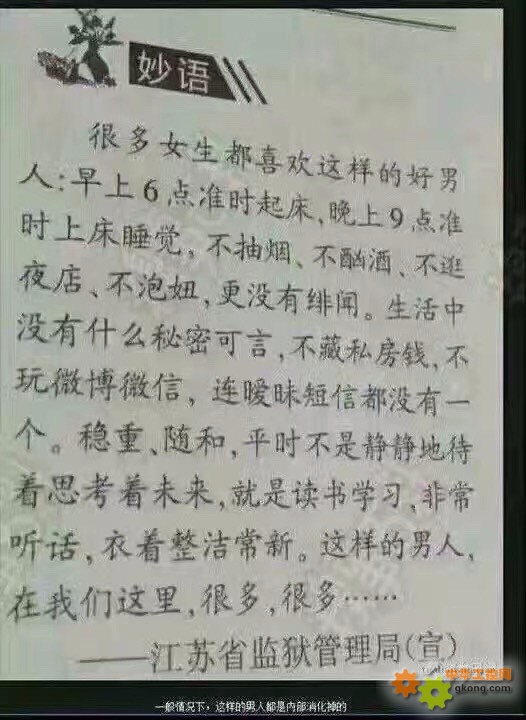 妙语
很多女生都喜欢这样的好男
人:早上6点准时起床,晚上9点准
时上床睡觉,不抽烟、不酗酒、不逛
夜店、不泡妞,更没有绯闻。生活中
没有什么秘密可言,不藏私房钱,不
玩微博微信,连暧昧短信都没有一
个。稳重、随和,平时不是静静地待
着思考着未来,就是读书学习,非常
听话,衣着整洁常新。这样的男人,
在我们这里,很多,很多……
——江苏省监狱管理局(宣)
gkong.com
一般情况下,这样的男人都是内部消化掉的